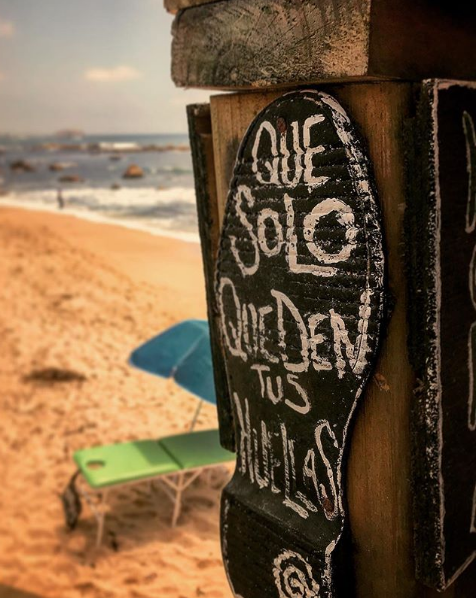 QUE
SOLO
QUEDEN
TUS
HUELLAS